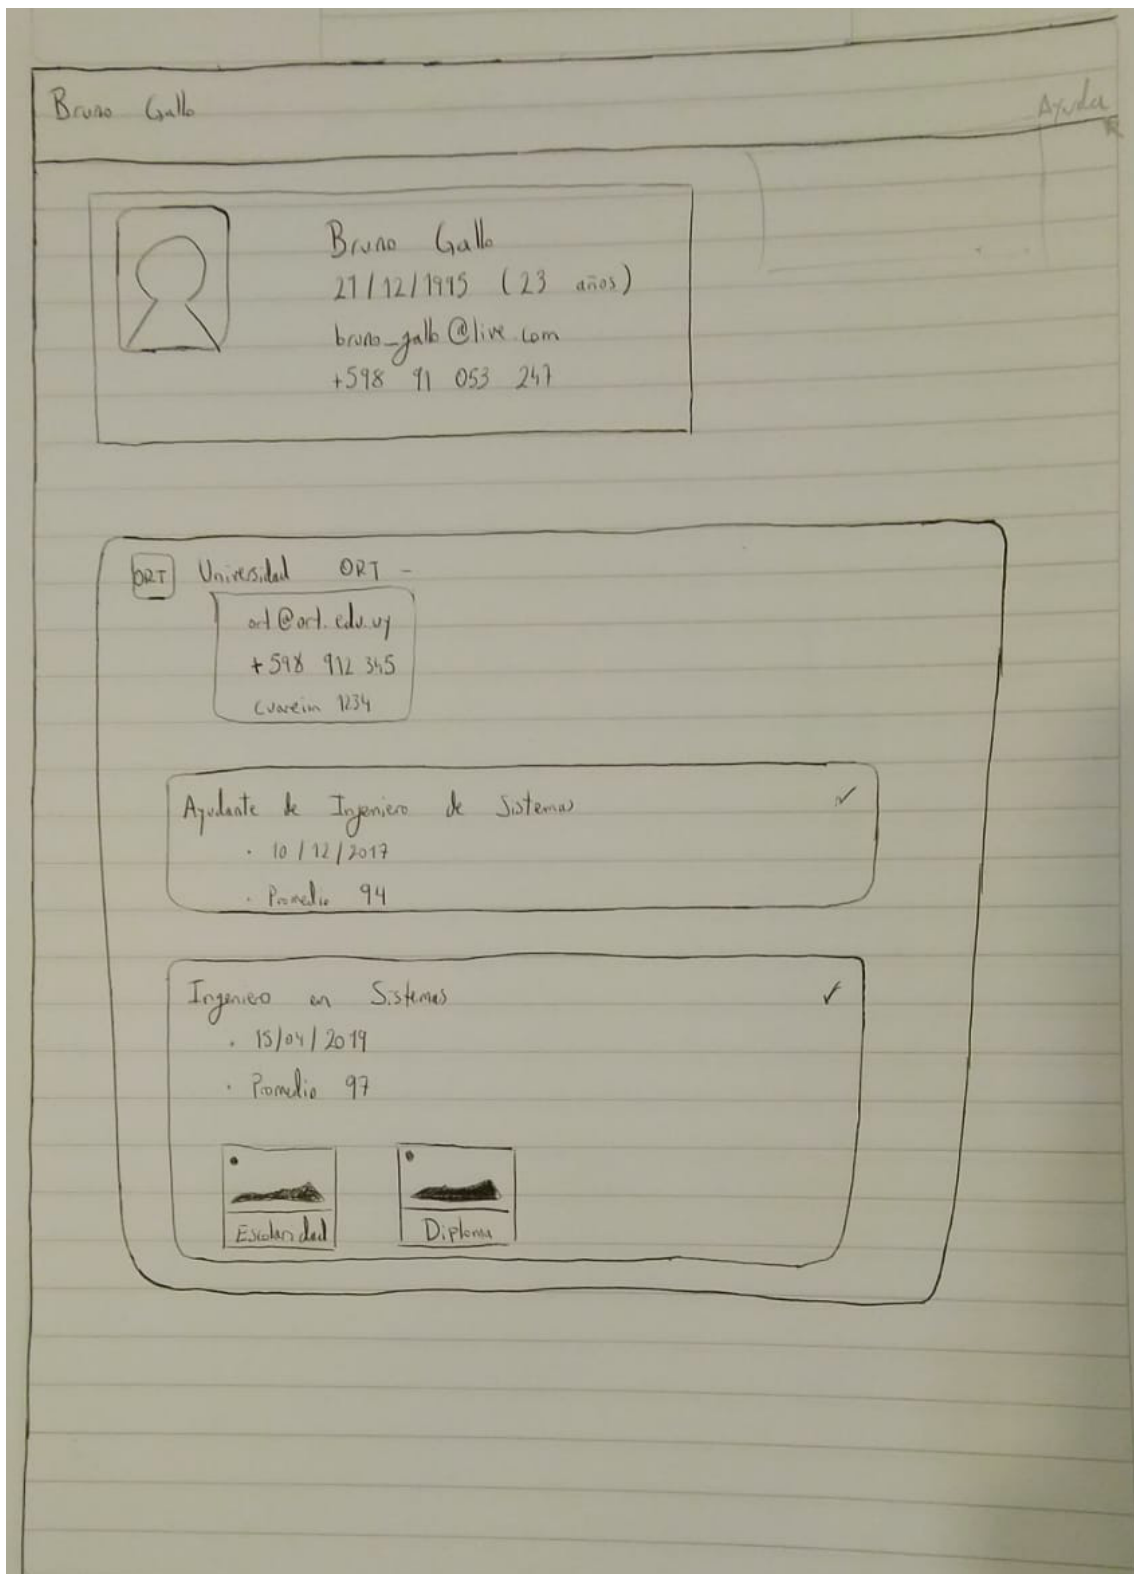 Bruno Gallo
Ayuda
Bruno Gallo
27/12/1995 (23 años)
bruno_gallo@live.com
+598 91 053 247
ORT
Universidad ORT -
ort@ort.edu.uy
+598 912 345
Cuareim 1234
Ayudante de Ingeniero de Sistemas ✓
· 10/12/2017
· Promedio 94
Ingeniero en Sistemas ✓
· 15/04/2019
· Promedio 97
Escolaridad
Diploma